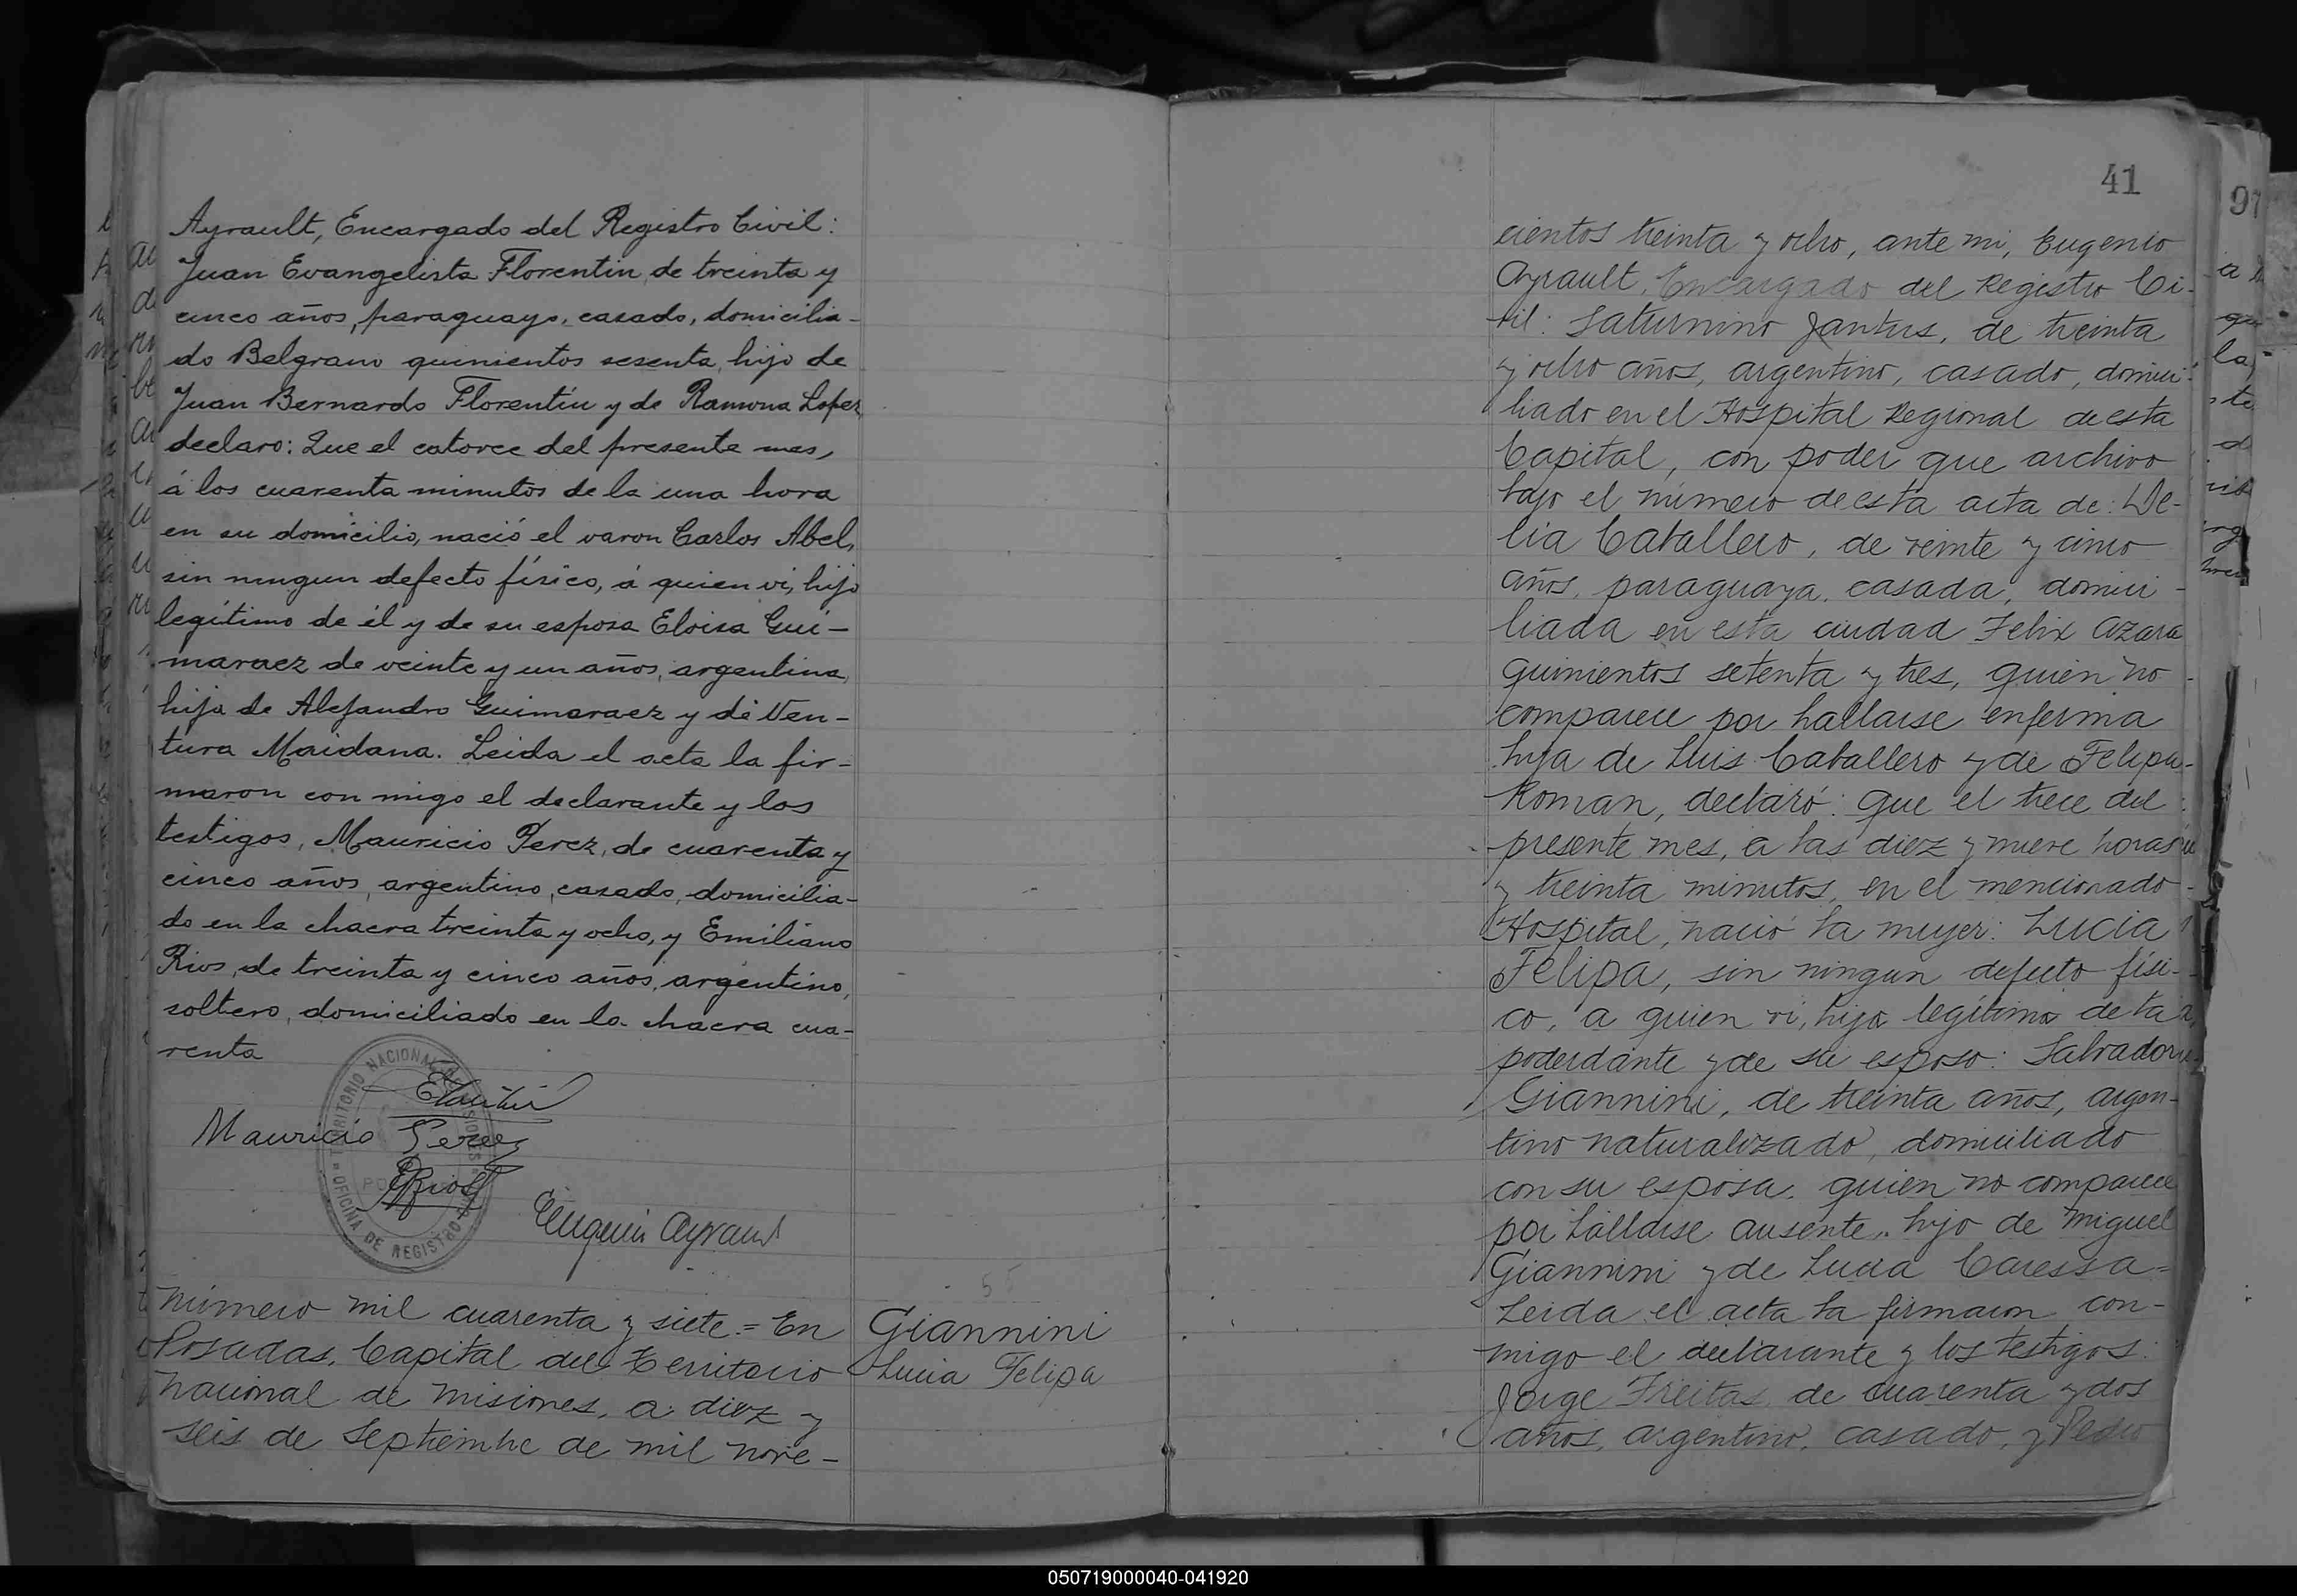 Ayrault, Encargado del Registro Civil:
Juan Evangelista Florentin, de treinta y
cinco años, paraguayo, casado, domicilia-
do Belgrano quinientos sesenta, hijo de
Juan Bernardo Florentin y de Ramona Lopez
declaro: Que el catorce del presente mes,
á los cuarenta minutos de la una hora
en su domicilio, nació el varon Carlos Abel,
sin ningun defecto físico, á quien vi, hijo
legítimo de él y de su esposa Eloisa Gui-
maraez de veinte y un años, argentina,
hija de Alejandro Guimaraez y de Ven-
tura Maidana. Leida el acta la fir-
maron con migo el declarante y los
testigos, Mauricio Perez, de cuarenta y
cinco años, argentino, casado, domicilia-
do en la chacra treinta y ocho, y Emiliano
Rios, de treinta y cinco años, argentino,
soltero, domiciliado en la chacra cua-
renta
Mauricio Perez
ERios
Eugenio Ayrault
TERRITORIO NACIONAL DE MISIONES
OFICINA DE REGISTRO
Número mil cuarenta y siete = En
Posadas, Capital del Territorio
Nacional de Misiones, a diez y
seis de Septiembre de mil nove-
Giannini
Lucia Felipa
41
cientos treinta y ocho, ante mi, Eugenio
Ayrault, Encargado del Registro Ci-
vil: Saturnino Jantus, de treinta
y ocho años, argentino, casado, domici-
liado en el Hospital Regional de esta
Capital, con poder que archivo
bajo el número de esta acta de: De-
lia Caballero, de veinte y cinco
años, paraguaya, casada, domici-
liada en esta ciudad Felix Azara
quinientos setenta y tres, quien no
comparece por hallarse enferma
hija de Luis Caballero y de Felipa
Roman, declaró: Que el trece del
presente mes, a las diez y nueve horas
y treinta minutos, en el mencionado
Hospital, nació la mujer: Lucia
Felipa, sin ningun defecto físi-
co, a quien vi, hija legítima de la
poderdante y de su esposo: Salvador
Giannini, de treinta años, argen-
tino naturalizado, domiciliado
con su esposa, quien no comparece
por hallarse ausente, hijo de Miguel
Giannini y de Lucia Caressa=
Leida el acta la firmaron con-
migo el declarante y los testigos:
Jorge Freitas, de cuarenta y dos
años, argentino, casado, y Pedro
97
050719000040-041920